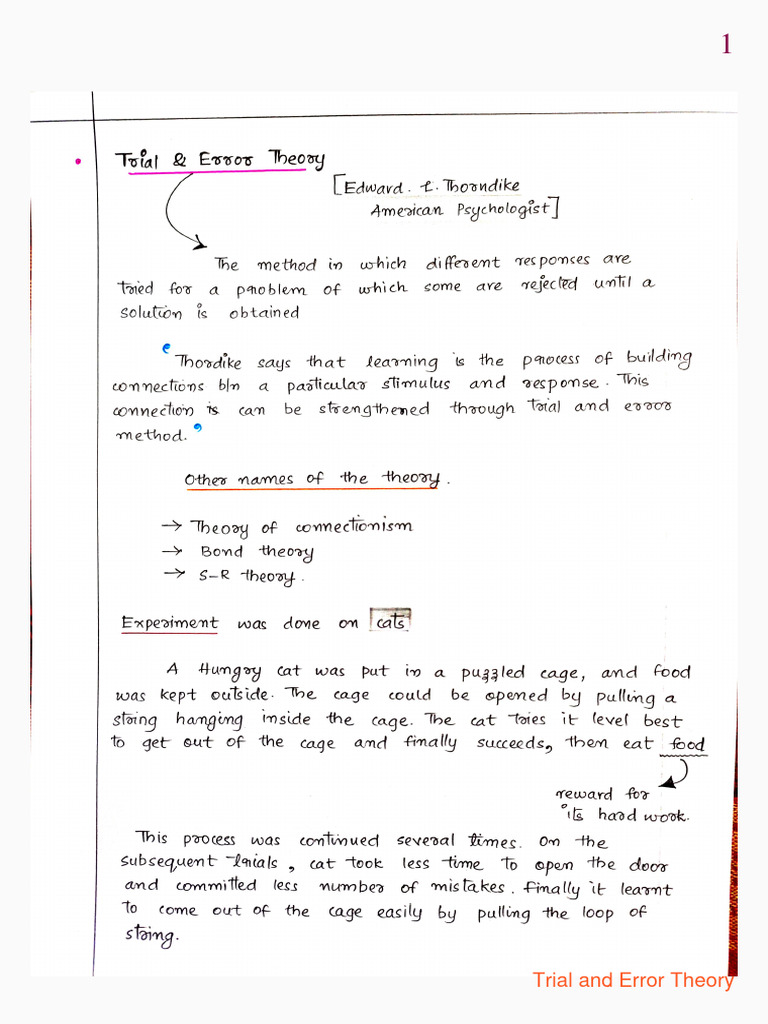 1
Trial & Error Theory
[Edward. L. Thorndike
American Psychologist]
The method in which different responces are
tried for a problem of which some are rejected until a
solution is obtained
Thordike says that learning is the process of building
connections b/n a particular stimulus and response. This
connection is can be strengthened through trial and error
method.
Other names of the theory.
→ Theory of connectionism
→ Bond theory
→ S-R theory.
Experiment was done on cats
A Hungry cat was put in a puzzled cage, and food
was kept outside. The cage could be opened by pulling a
string hanging inside the cage. The cat tries it level best
to get out of the cage and finally succeeds, then eat food
reward for
its hard work.
This process was continued several times. On the
subsequent trials, cat took less time to open the door
and committed less number of mistakes. Finally it learnt
to come out of the cage easily by pulling the loop of
string.
Trial and Error Theory